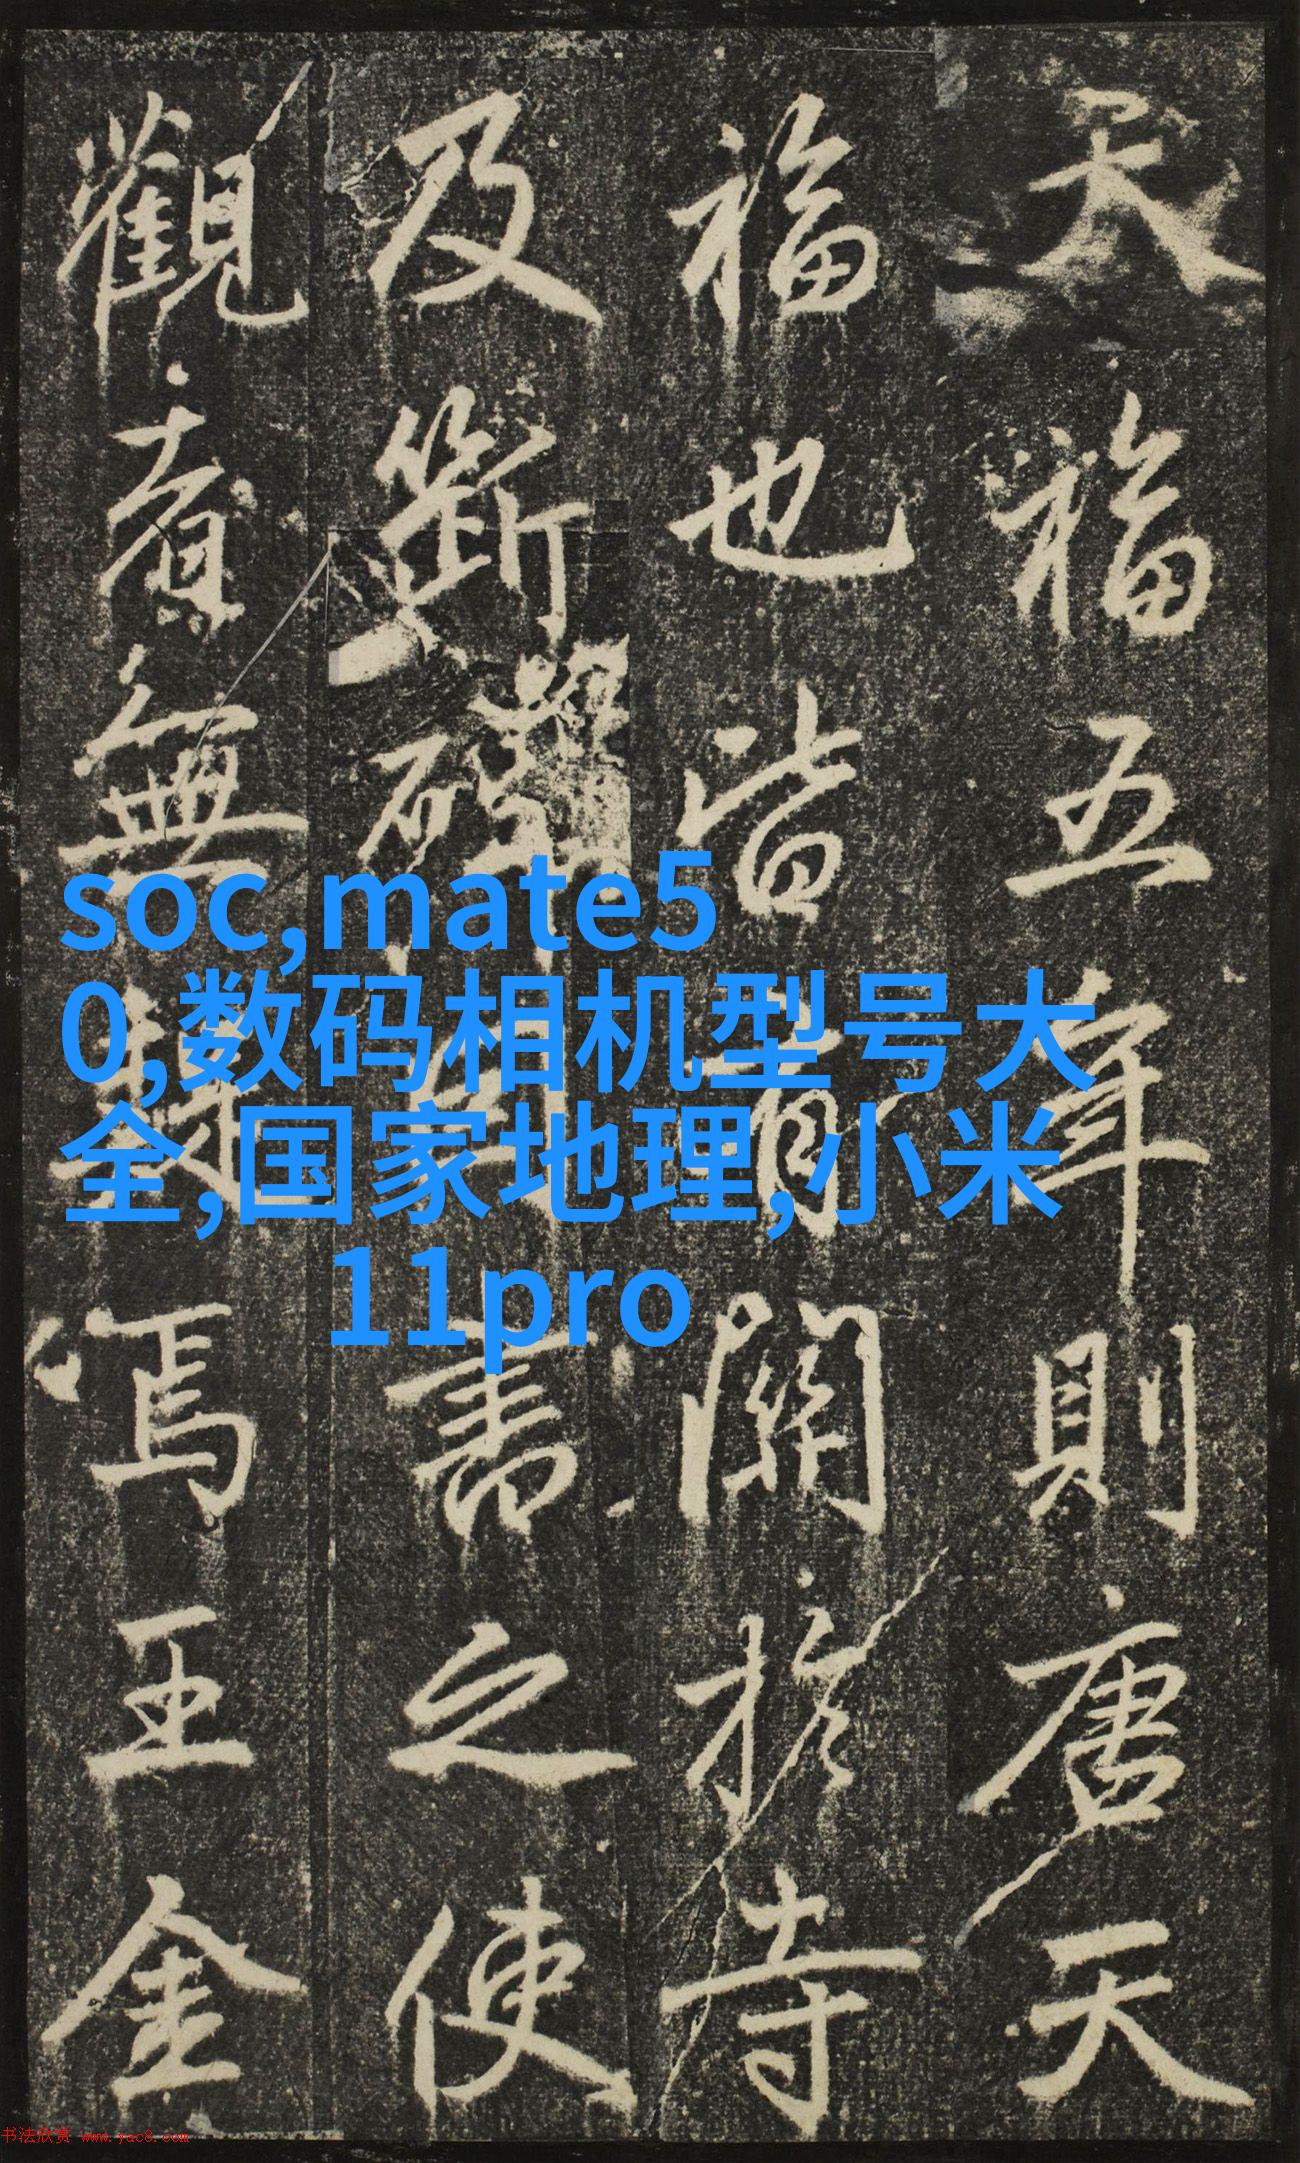 天福五年則唐天
福也皆關於寺
及斷碑書之使
觀無焉王金
soc,mate5
0,数码相机型号大
全,国家地理,小米
11pro
书法欣赏 www.yac8.com